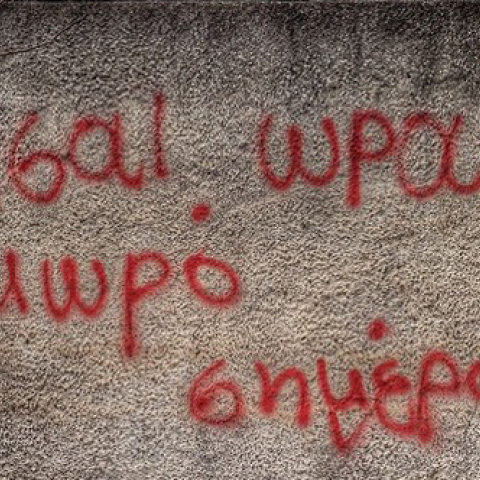 σαι ωρα
μωρό
σημέρα